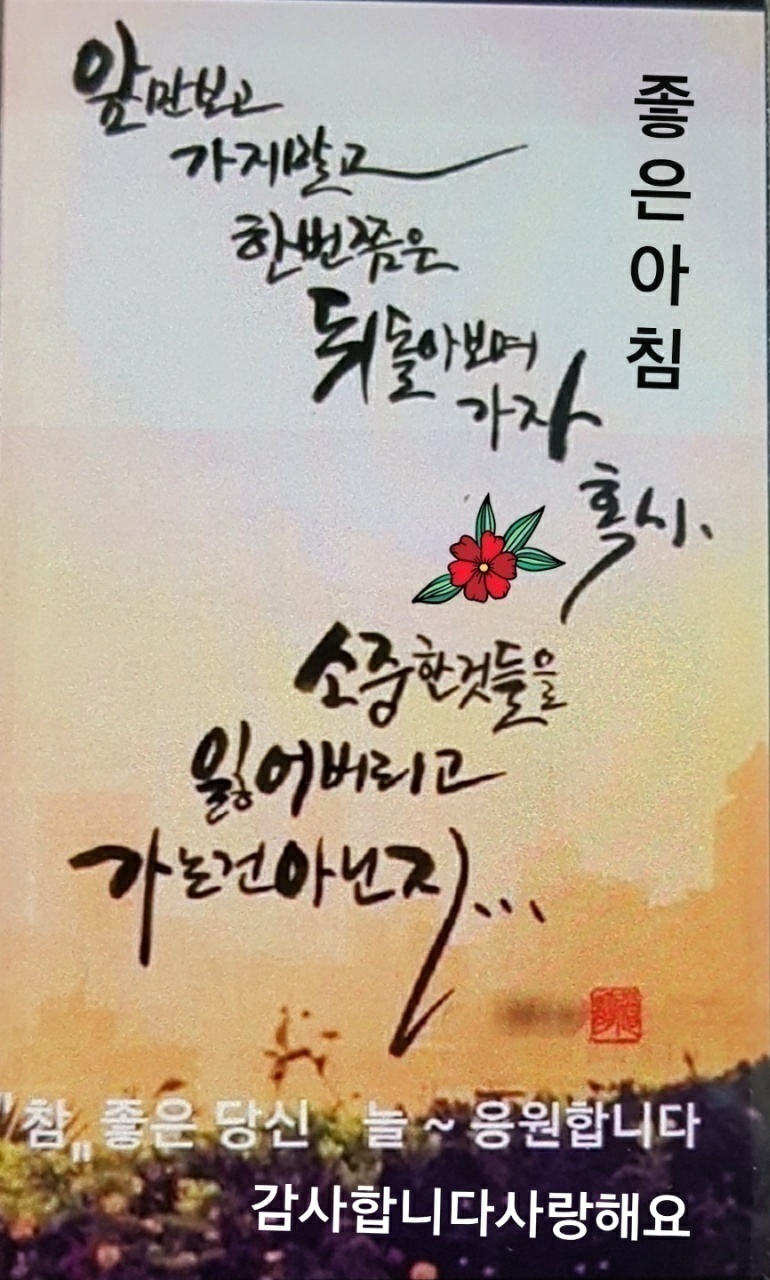 앞만보고
가지말고
한번쯤은
뒤돌아보며
가자
혹시.
소중한것들을
잃어버리고
가는건아닌지...
좋은아침
"참" 좋은 당신 늘 ~ 응원합니다
감사합니다사랑해요